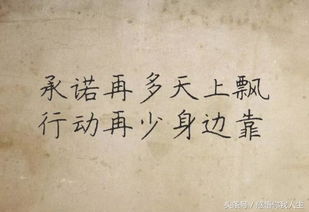 承诺再多天上飘
行动再少身边靠
头条号 / 感悟你我人生